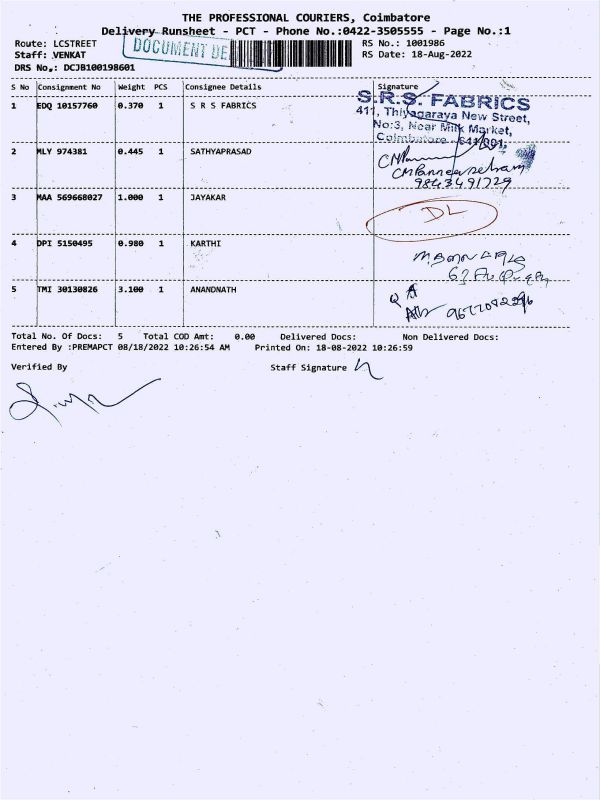 THE PROFESSIONAL COURIERS, Coimbatore
Delivery Runsheet - PCT - Phone No.:0422-3505555 - Page No.:1
Route: LCSTREET RS No.: 1001986
Staff: VENKAT RS Date: 18-Aug-2022
DRS No.: DCJB100198601
DOCUMENT DE
S No Consignment No Weight PCS Consignee Details Signature
1 EDQ 10157760 0.370 1 S R S FABRICS
S.R.S. FABRICS
411, Thiyagaraya New Street,
No:3, Near Milk Market,
Coimbatore - 641 001.
2 MLY 974381 0.445 1 SATHYAPRASAD
CMPanneerselvam
9843491729
3 MAA 569668027 1.000 1 JAYAKAR DL
4 DPI 5150495 0.980 1 KARTHI
5 TMI 30130826 3.100 1 ANANDNATH
Total No. Of Docs: 5 Total COD Amt: 0.00 Delivered Docs: Non Delivered Docs:
Entered By :PREMAPCT 08/18/2022 10:26:54 AM Printed On: 18-08-2022 10:26:59
Verified By Staff Signature